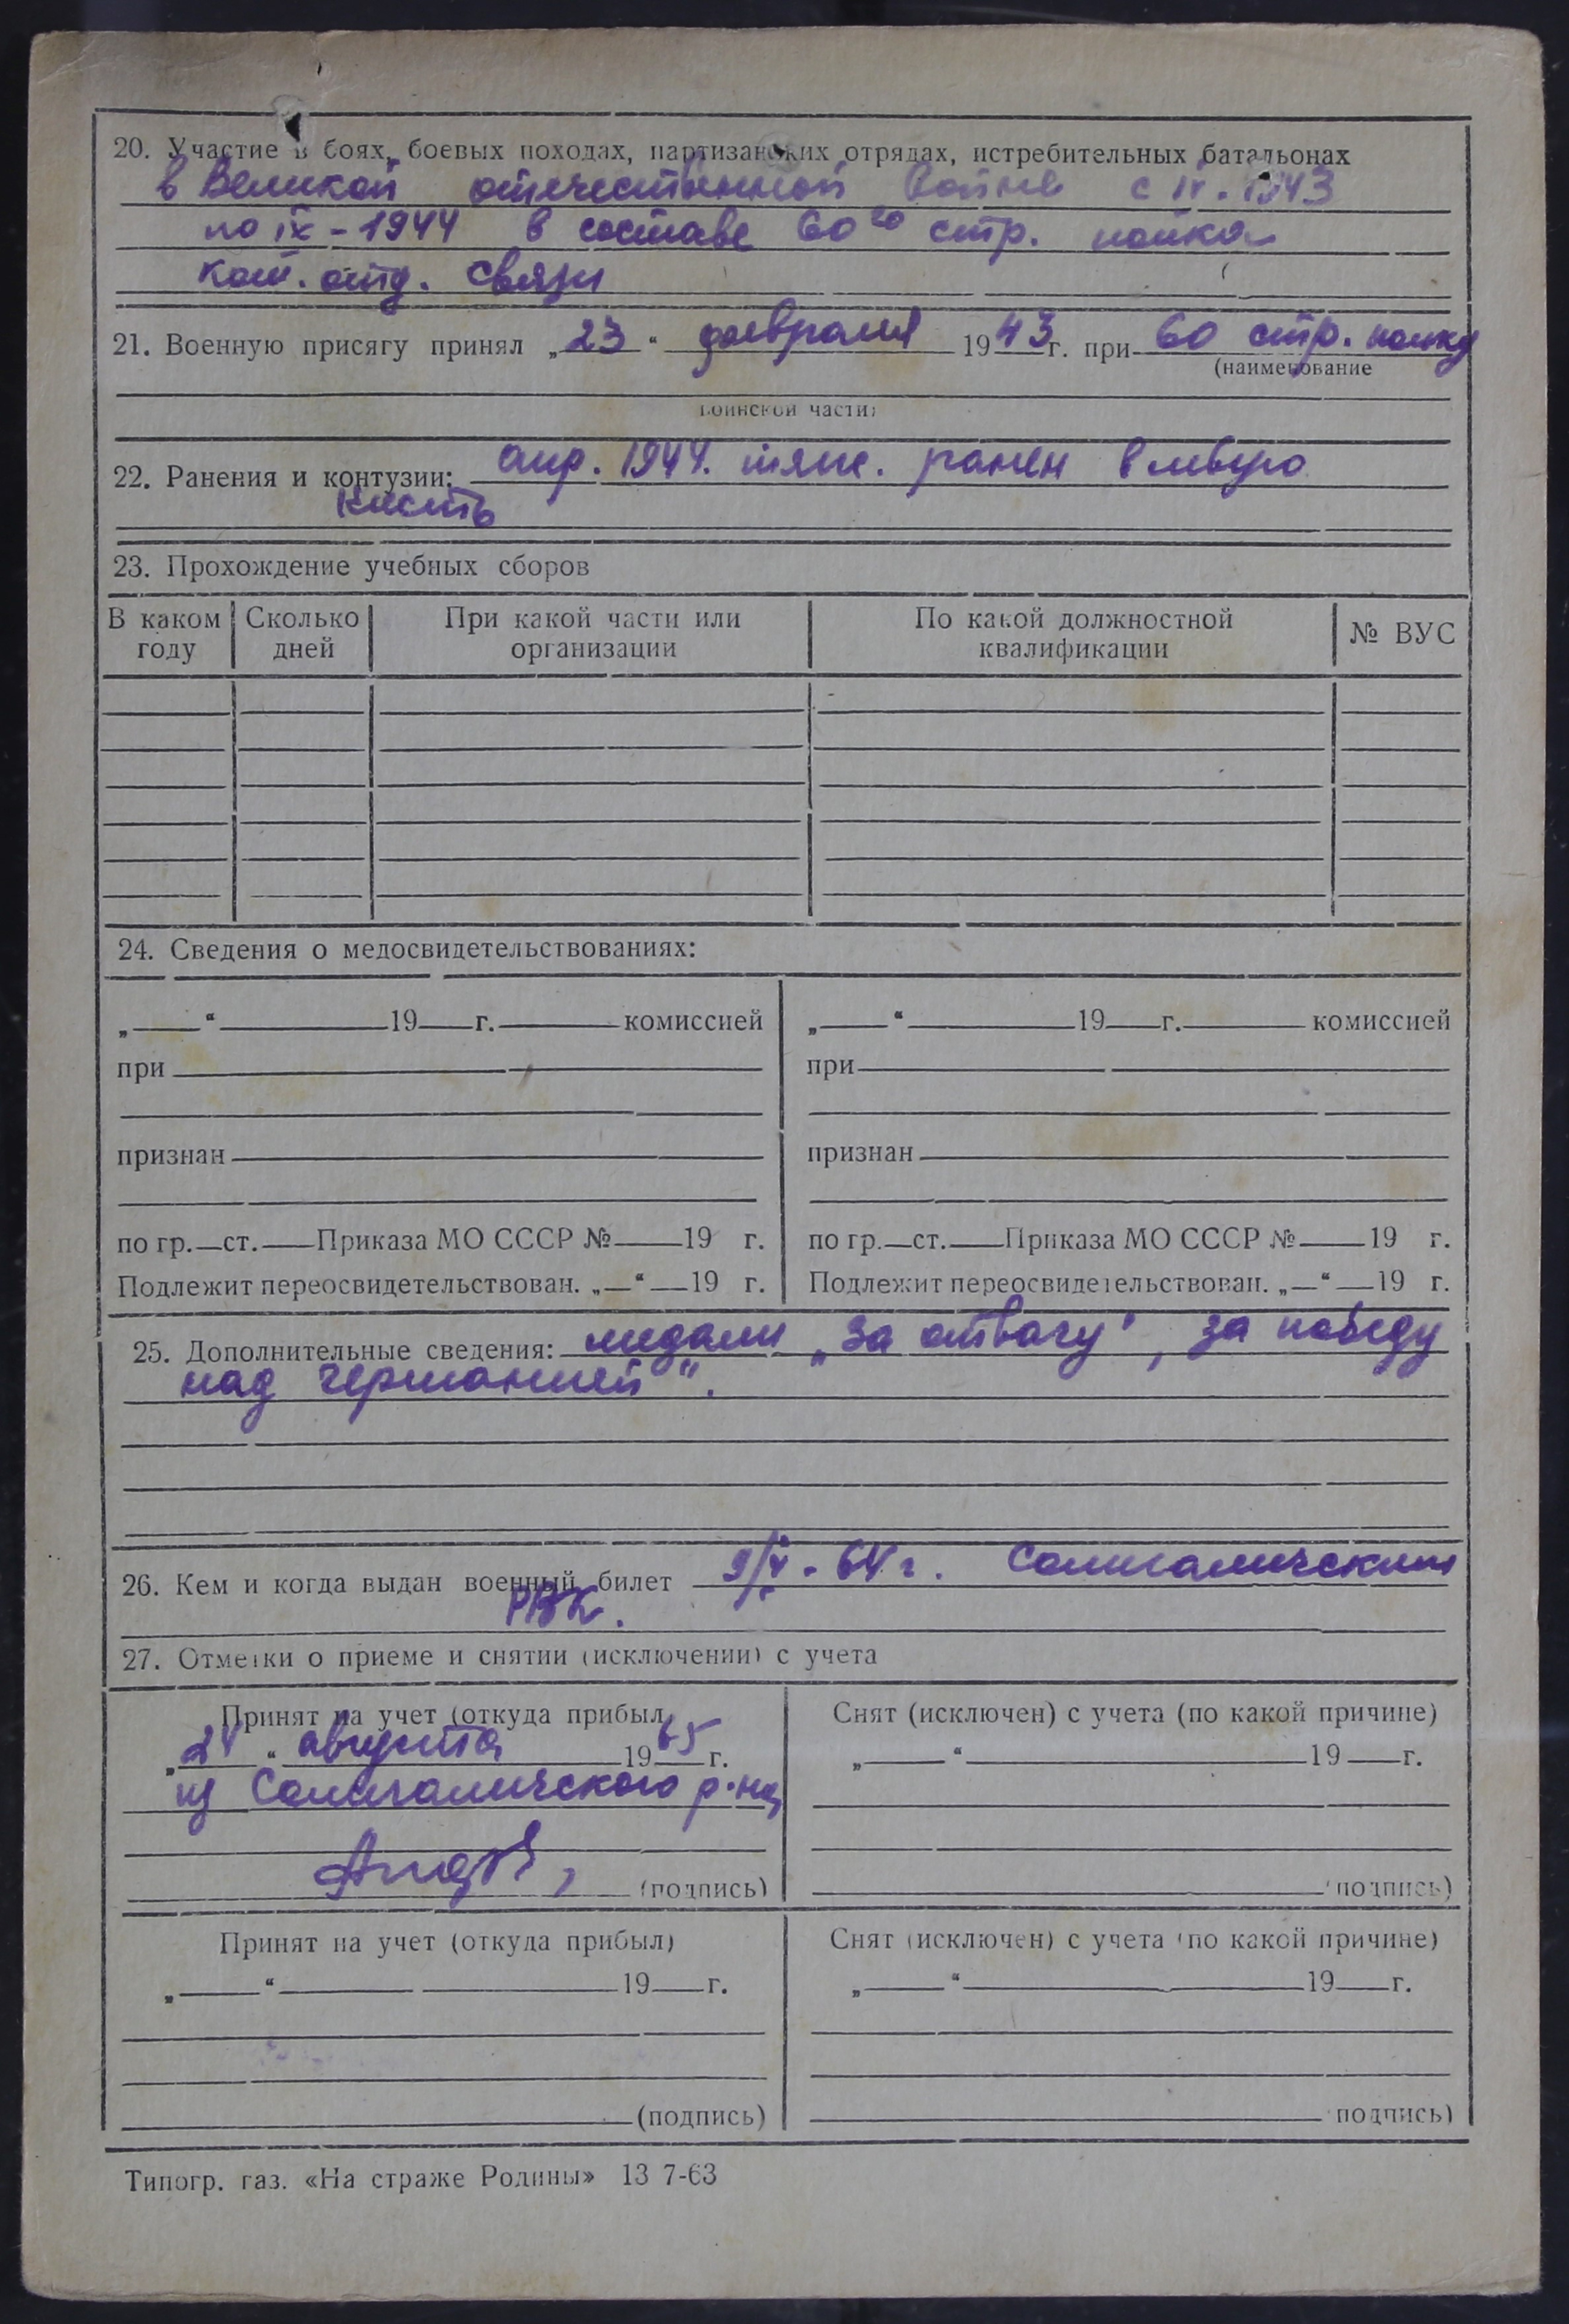 20. Участие в боях, боевых походах, партизанских отрядах, истребительных батальонах
в Великой отечественной войне с IV-1943
по IX-1944 в составе 60го стр. полка
ком. отд. связи
21. Военную присягу принял „23“ февраля 1943г. при 60 стр. полку
(наименование
воинской части)
22. Ранения и контузии: апр. 1944. тяж. ранен в левую
кисть
23. Прохождение учебных сборов
В каком году Сколько дней При какой части или организации По какой должностной квалификации № ВУС
24. Сведения о медосвидетельствованиях:
„ “ 19 г. комиссией
при
признан
по гр. ст. Приказа МО СССР № 19 г.
Подлежит переосвидетельствован. „ “ 19 г.
„ “ 19 г. комиссией
при
признан
по гр. ст. Приказа МО СССР № 19 г.
Подлежит переосвидетельствован. „ “ 19 г.
25. Дополнительные сведения: медали „За отвагу", за победу
над германией".
26. Кем и когда выдан военный билет 9/V-64г. Солигаличским
РВК.
27. Отметки о приеме и снятии (исключении) с учета
Принят на учет (откуда прибыл
„24“ августа 1965г.
из Солигаличского р-на
(подпись)
Снят (исключен) с учета (по какой причине)
„ “ 19 г.
(подпись)
Принят на учет (откуда прибыл)
„ “ 19 г.
(подпись)
Снят (исключен) с учета (по какой причине)
„ “ 19 г.
подпись)
Типогр. газ. «На страже Родины» 13 7-63